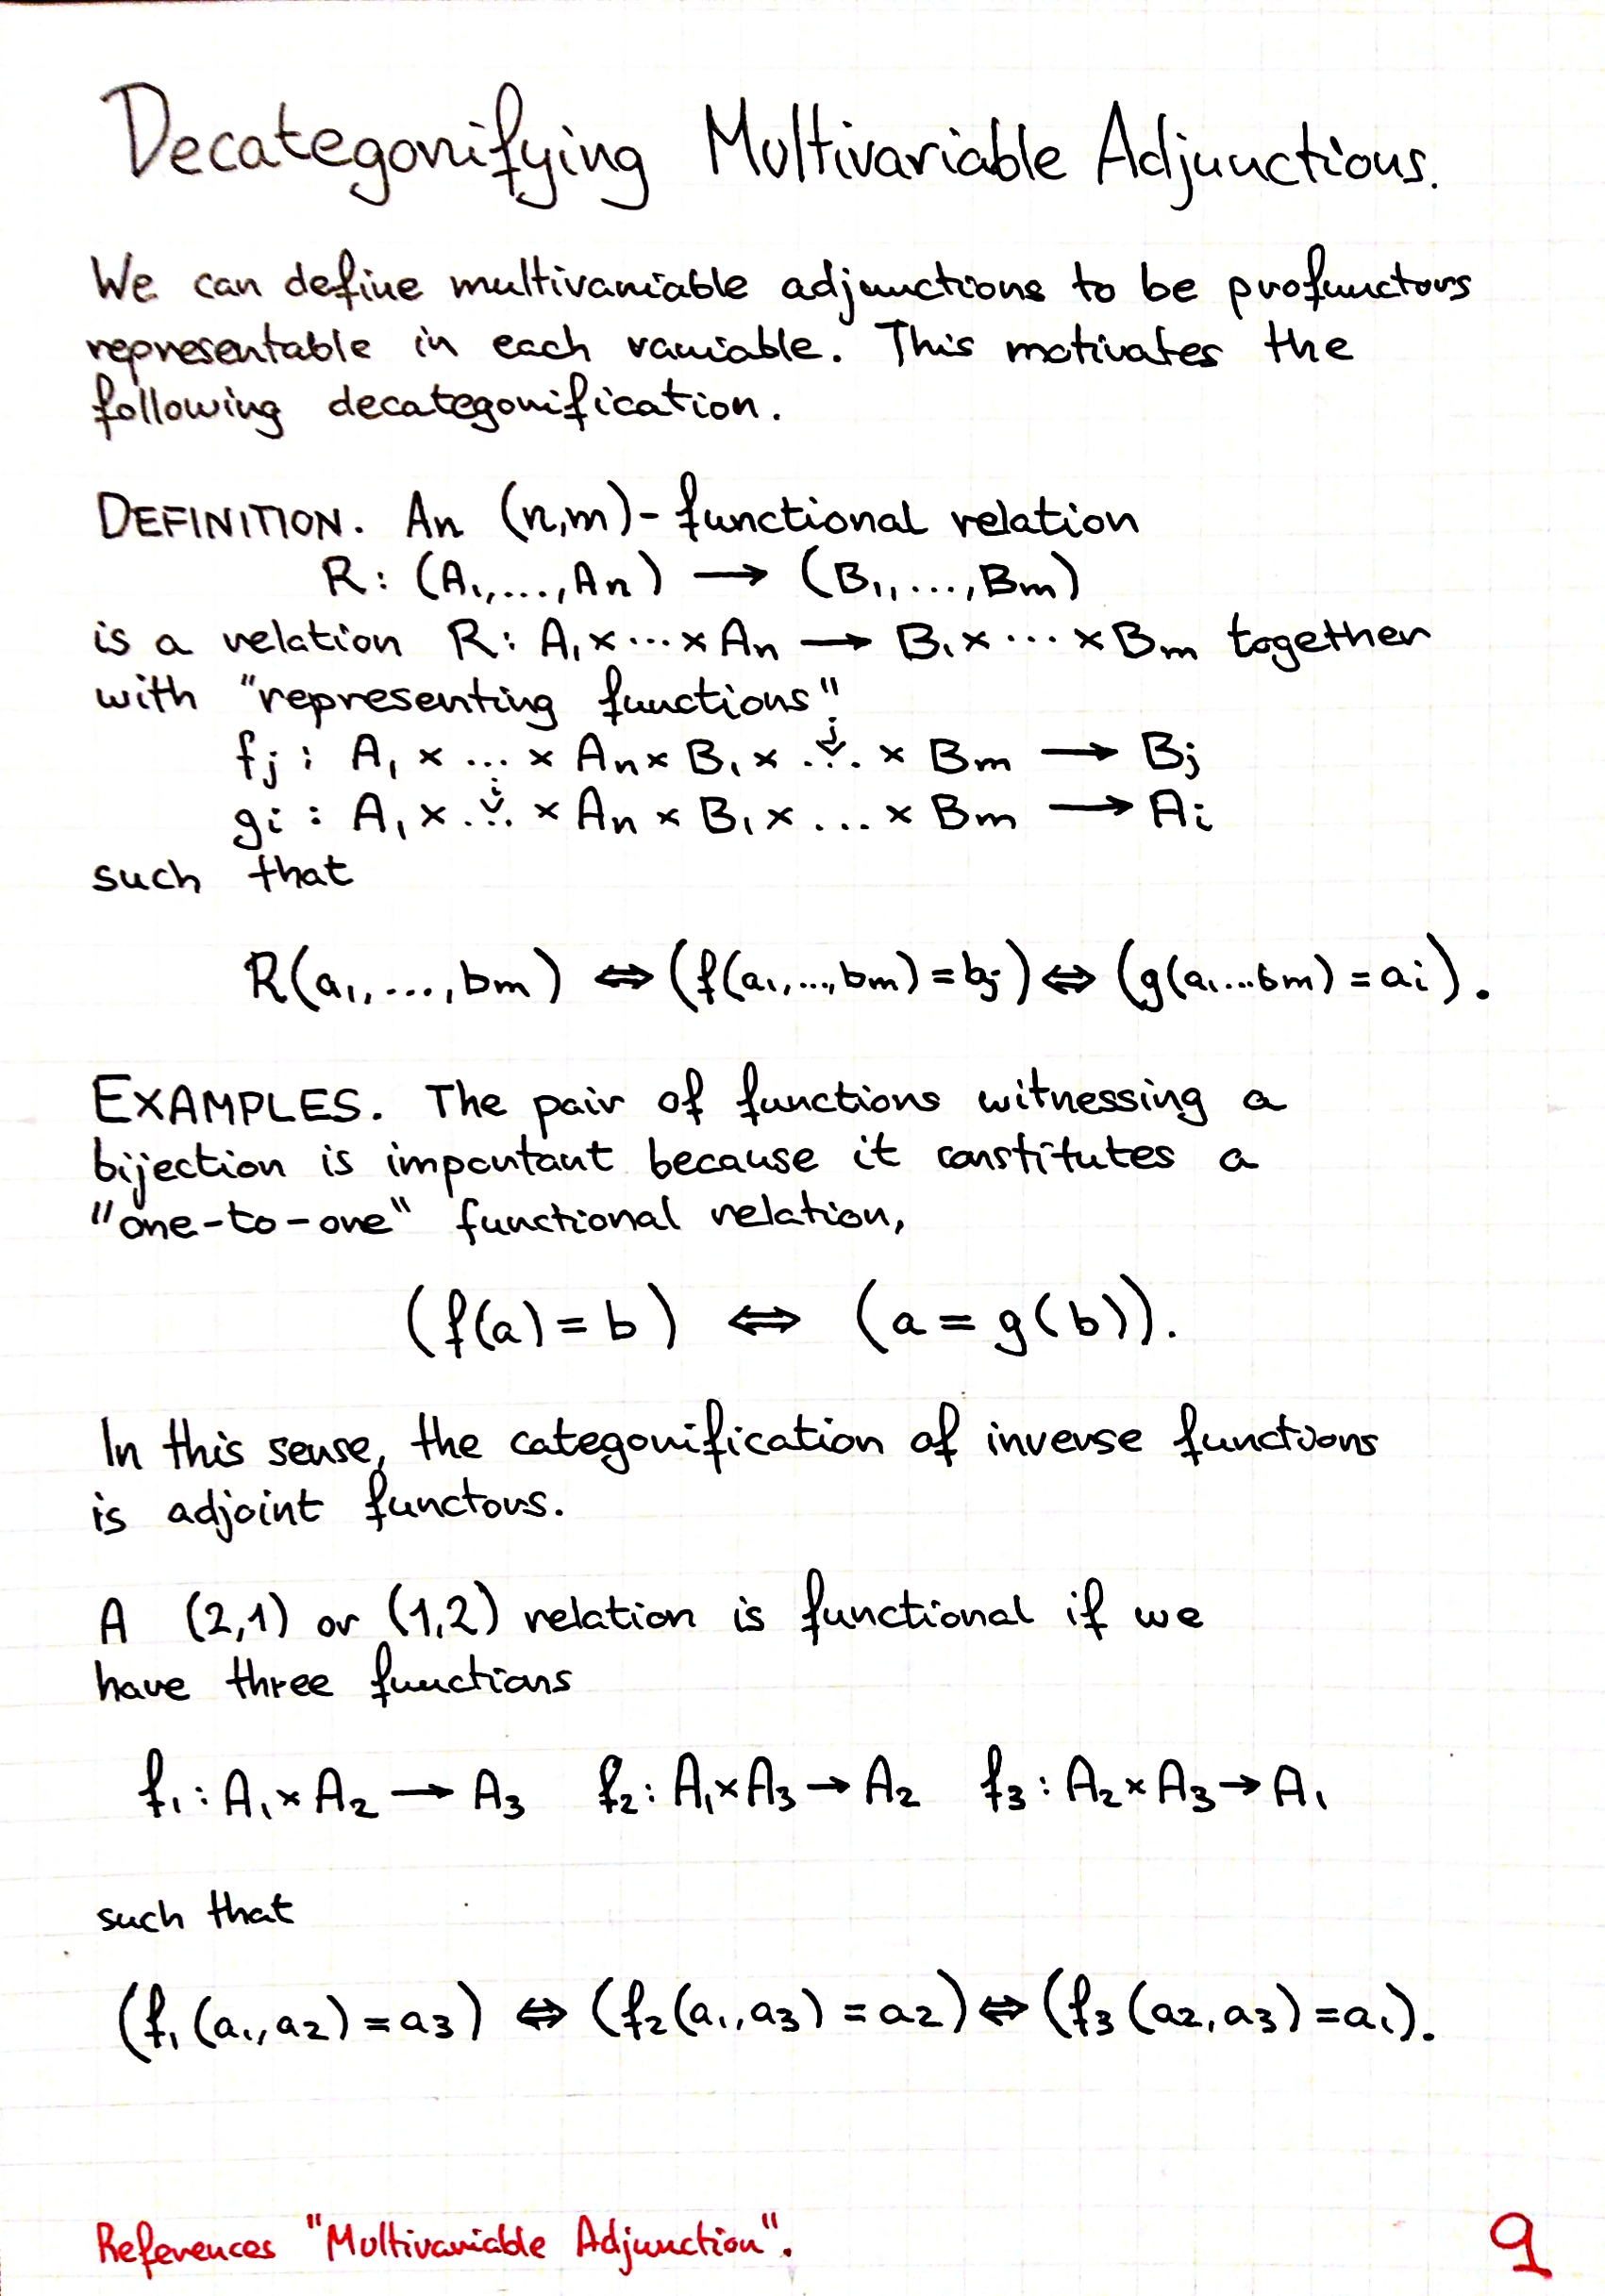 Decategorifying Multivariable Adjunctions.
We can define multivariable adjunctions to be profunctors
representable in each variable. This motivates the
following decategorification.
DEFINITION. An (n,m)-functional relation
R: (A₁,...,An) → (B₁,...,Bm)
is a relation R: A₁×···×An → B₁×···×Bm together
with "representing functions"
fj : A₁ × ... × An × B₁ × .j̬. × Bm → Bj
gi : A₁ × .i̬. × An × B₁ × ... × Bm → Ai
such that
R(a₁,...,bm) ⇔ (f(a₁,...,bm) = bj) ⇔ (g(a₁...bm) = ai).
EXAMPLES. The pair of functions witnessing a
bijection is important because it constitutes a
"one-to-one" functional relation,
(f(a) = b) ⇔ (a = g(b)).
In this sense, the categorification of inverse functions
is adjoint functors.
A (2,1) or (1,2) relation is functional if we
have three functions
f₁ : A₁×A₂ → A₃ f₂ : A₁×A₃ → A₂ f₃ : A₂×A₃ → A₁
such that
(f₁(a₁,a₂) = a₃) ⇔ (f₂(a₁,a₃) = a₂) ⇔ (f₃(a₂,a₃) = a₁).
References "Multivariable Adjunction".
9